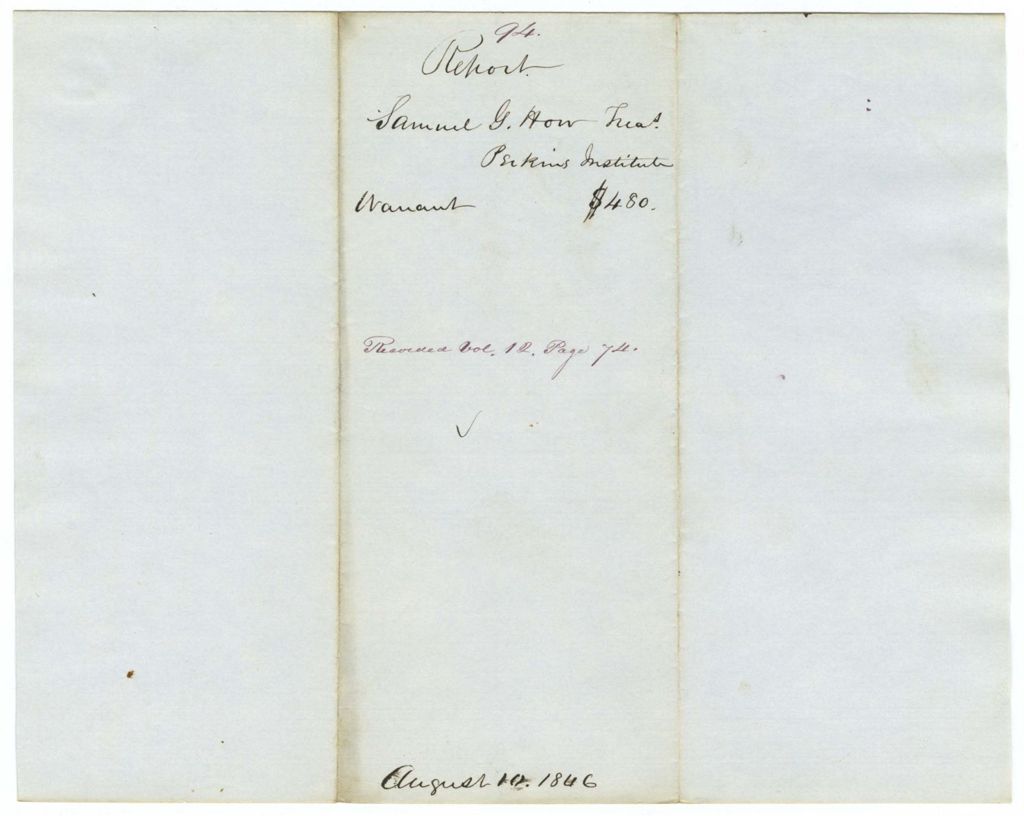 94.
Report
Samuel G. How Treas.
Perkins Institute
Warrant $480.
Recorded Vol. 12. Page 74.
August 10. 1846